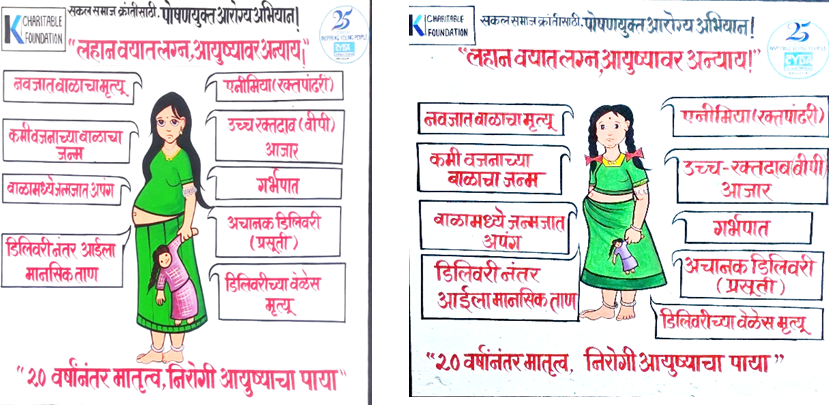 K CHARITABLE
FOUNDATION
सकल समाज क्रांतीसाठी. पोषणयुक्त आरोग्य अभियान!
25
"लहान वयात लग्न, आयुष्यावर अन्याय!"
नवजात बाळाचा मृत्यू
एनीमिया (रक्तपांढरी)
कमी वजनाच्या बाळाचा
जन्म
उच्च रक्तदाब (बीपी)
आजार
बाळामध्ये जन्मजात अपंग
गर्भपात
अचानक डिलिवरी
(प्रसूती)
डिलिवरी नंतर आईला
मानसिक ताण
डिलिवरीच्या वेळेस
मृत्यू
"20 वर्षांनंतर मातृत्व, निरोगी आयुष्याचा पाया"
K CHARITABLE
FOUNDATION
सकल समाज क्रांतीसाठी. पोषणयुक्त आरोग्य अभियान!
25
"लहान वयात लग्न, आयुष्यावर अन्याय!"
नवजात बाळाचा मृत्यू
एनीमिया (रक्तपांढरी)
कमी वजनाच्या
बाळाचा जन्म
उच्च-रक्तदाब (बीपी)
आजार
बाळामध्ये जन्मजात
अपंग
गर्भपात
डिलिवरी नंतर
आईला मानसिक ताण
अचानक डिलिवरी
(प्रसूती)
डिलिवरीच्या वेळेस मृत्यू
"20 वर्षांनंतर मातृत्व, निरोगी आयुष्याचा पाया"